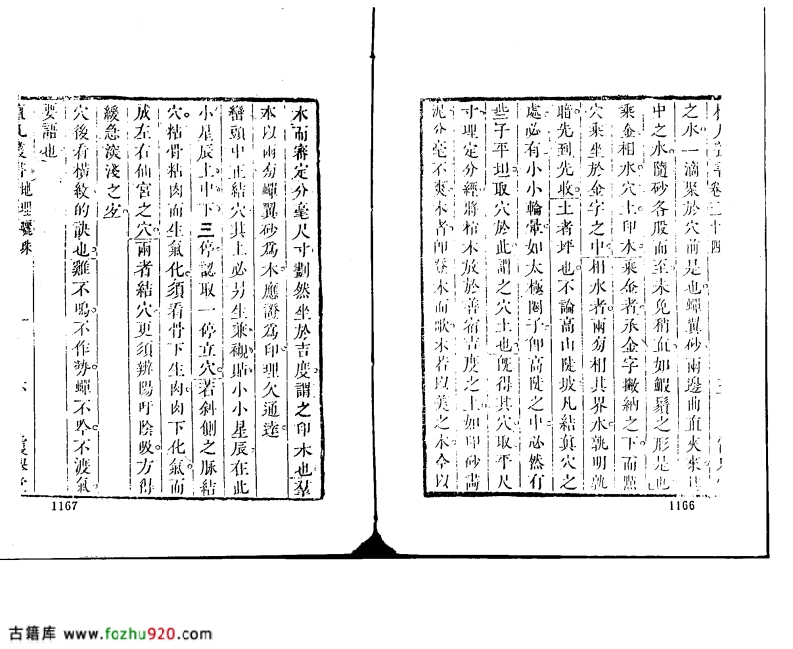 之水一滴聚於穴前是也蟬翼砂兩邊曲直夾來
中之水隨砂各股而至未免稍直如蝦鬚之形是也
乘金相水穴土印木乘金者承金字撇納之下而點
穴乘坐於金字之中相水者兩旁相其界水孰明孰
暗先到先收土者坪也不論高山陡坡凡結眞穴之
處必有小小輪暈如太極圈子仰高陡之中必然有
些子平坦取穴於此謂之穴土也既得其穴取平尺
寸理定分經將棺木放於善宿吉度之上如印砂畵
泥分毫不爽木者即登木而歌木若以美之木今以
1166
水而審定分毫尺寸劃然坐於吉度謂之印木也羣
本以兩旁蟬翼砂爲木應證爲印理欠通達
巒頭中正結穴其上必另生乘襯貼小小星辰在此
小星辰上中下三停認取一停立穴若斜側之脉結
穴粘骨粘肉而生氣化須看骨下生肉肉下化氣而
成左右仙宮之穴兩者結穴更須辨陽吁陰吸方得
緩急淡淺之妙
穴後看橫紋的訣也雞不鳴不作勢蟬不吟不渡氣
要語也
地理驪珠
1167
古籍库 www.fozhu920.com